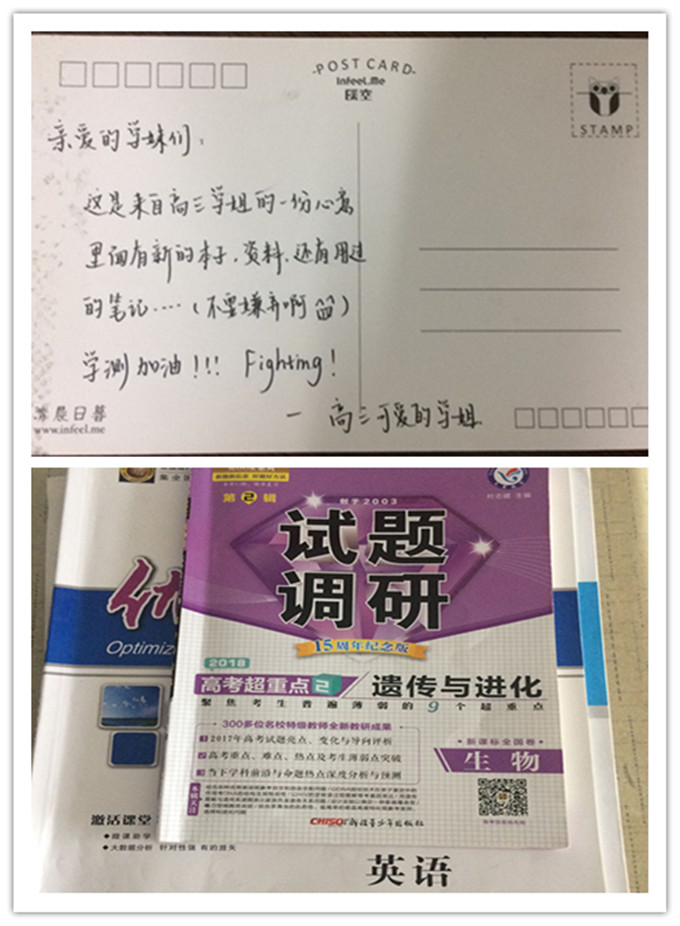 POST CARD
Infeel.Me
STAMP
亲爱的学妹们：
这是来自高三学姐的一份心意
里面有新的本子，资料，还有用过
的笔记……（不要嫌弃啊）
学测加油!!! Fighting!
— 高三可爱的学姐
www.infeel.me
第2辑
创于2003
试题
调研
15周年纪念版
2018
高考超重点2
遗传与进化
聚焦考生普遍薄弱的9个超重点
300多位名校特级教师全新教研成果
1 2017年高考试题亮点、变化与导向评析
高考重点、难点、热点及考生薄弱点突破
当下学科前沿与命题热点深度分析与预测
新课标全国卷
生物
本辑关注
新疆青少年出版社
Optimiz
激活课堂
微课助学
大数据分析 针对性强 有的放矢
英语